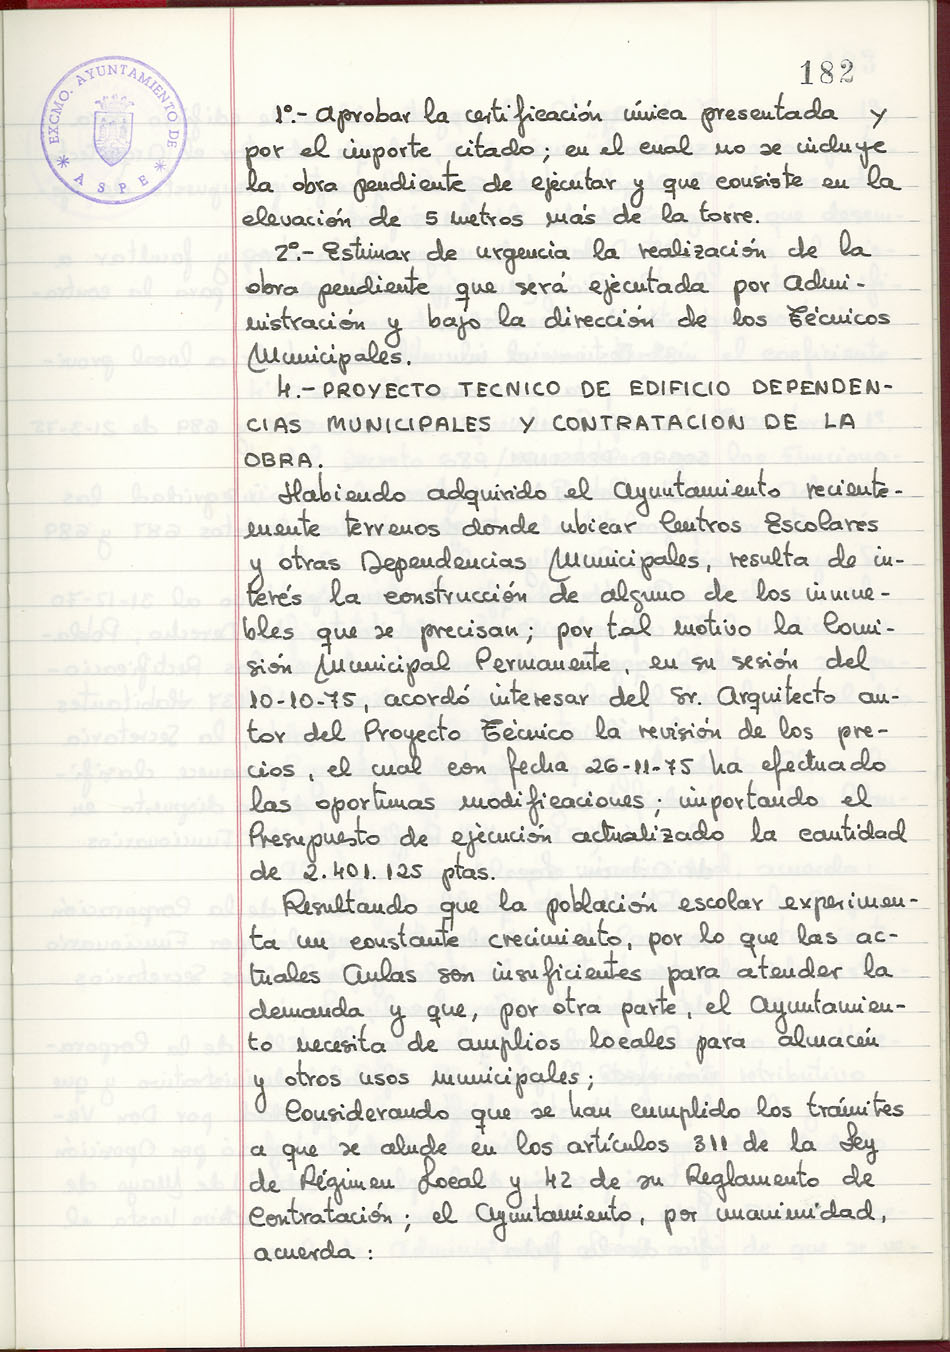 182
EXCMO. AYUNTAMIENTO DE
* ASPE *
1º.- Aprobar la certificación única presentada y
por el importe citado; en el cual no se incluye
la obra pendiente de ejecutar y que consiste en la
elevación de 5 metros más de la torre.
2º.- Estimar de urgencia la realización de la
obra pendiente que será ejecutada por Admi-
nistración y bajo la dirección de los Técnicos
Municipales.
4.- PROYECTO TECNICO DE EDIFICIO DEPENDEN-
CIAS MUNICIPALES Y CONTRATACION DE LA
OBRA.
Habiendo adquirido el Ayuntamiento reciente-
mente terrenos donde ubicar Centros Escolares
y otras Dependencias Municipales, resulta de in-
terés la construcción de alguno de los inmue-
bles que se precisan; por tal motivo la Comi-
sión Municipal Permanente, en su sesión del
10-10-75, acordó interesar del Sr. Arquitecto au-
tor del Proyecto Técnico la revisión de los pre-
cios, el cual con fecha 26-11-75 ha efectuado
las oportunas modificaciones; importando el
Presupuesto de ejecución actualizado la cantidad
de 2.401.125 ptas.
Resultando que la población escolar experimen-
ta un constante crecimiento, por lo que las ac-
tuales Aulas son insuficientes para atender la
demanda y que, por otra parte, el Ayuntamien-
to necesita de amplios locales para almacén
y otros usos municipales;
Considerando que se han cumplido los trámites
a que se alude en los artículos 311 de la Ley
de Régimen Local y 42 de su Reglamento de
Contratación; el Ayuntamiento, por unanimidad,
acuerda: